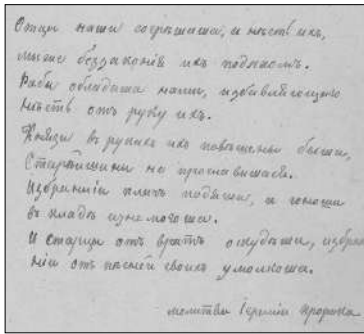 Отцы наши согрѣшиша, и нѣсть ихъ,
мы же беззаконія ихъ подъяхомъ.
Раби обладаша нами, избавляющаго
нѣсть отъ руку ихъ.
Князи въ рукахъ ихъ повѣшены быша,
Старѣйшины не прославишася.
Избранніи плачъ подъяша, и юноши
въ кладѣ изнемогоша.
И старцы отъ вратъ оскудѣша, избран
ніи отъ пѣсней своихъ умолкоша.
молитва Іереміи пророка